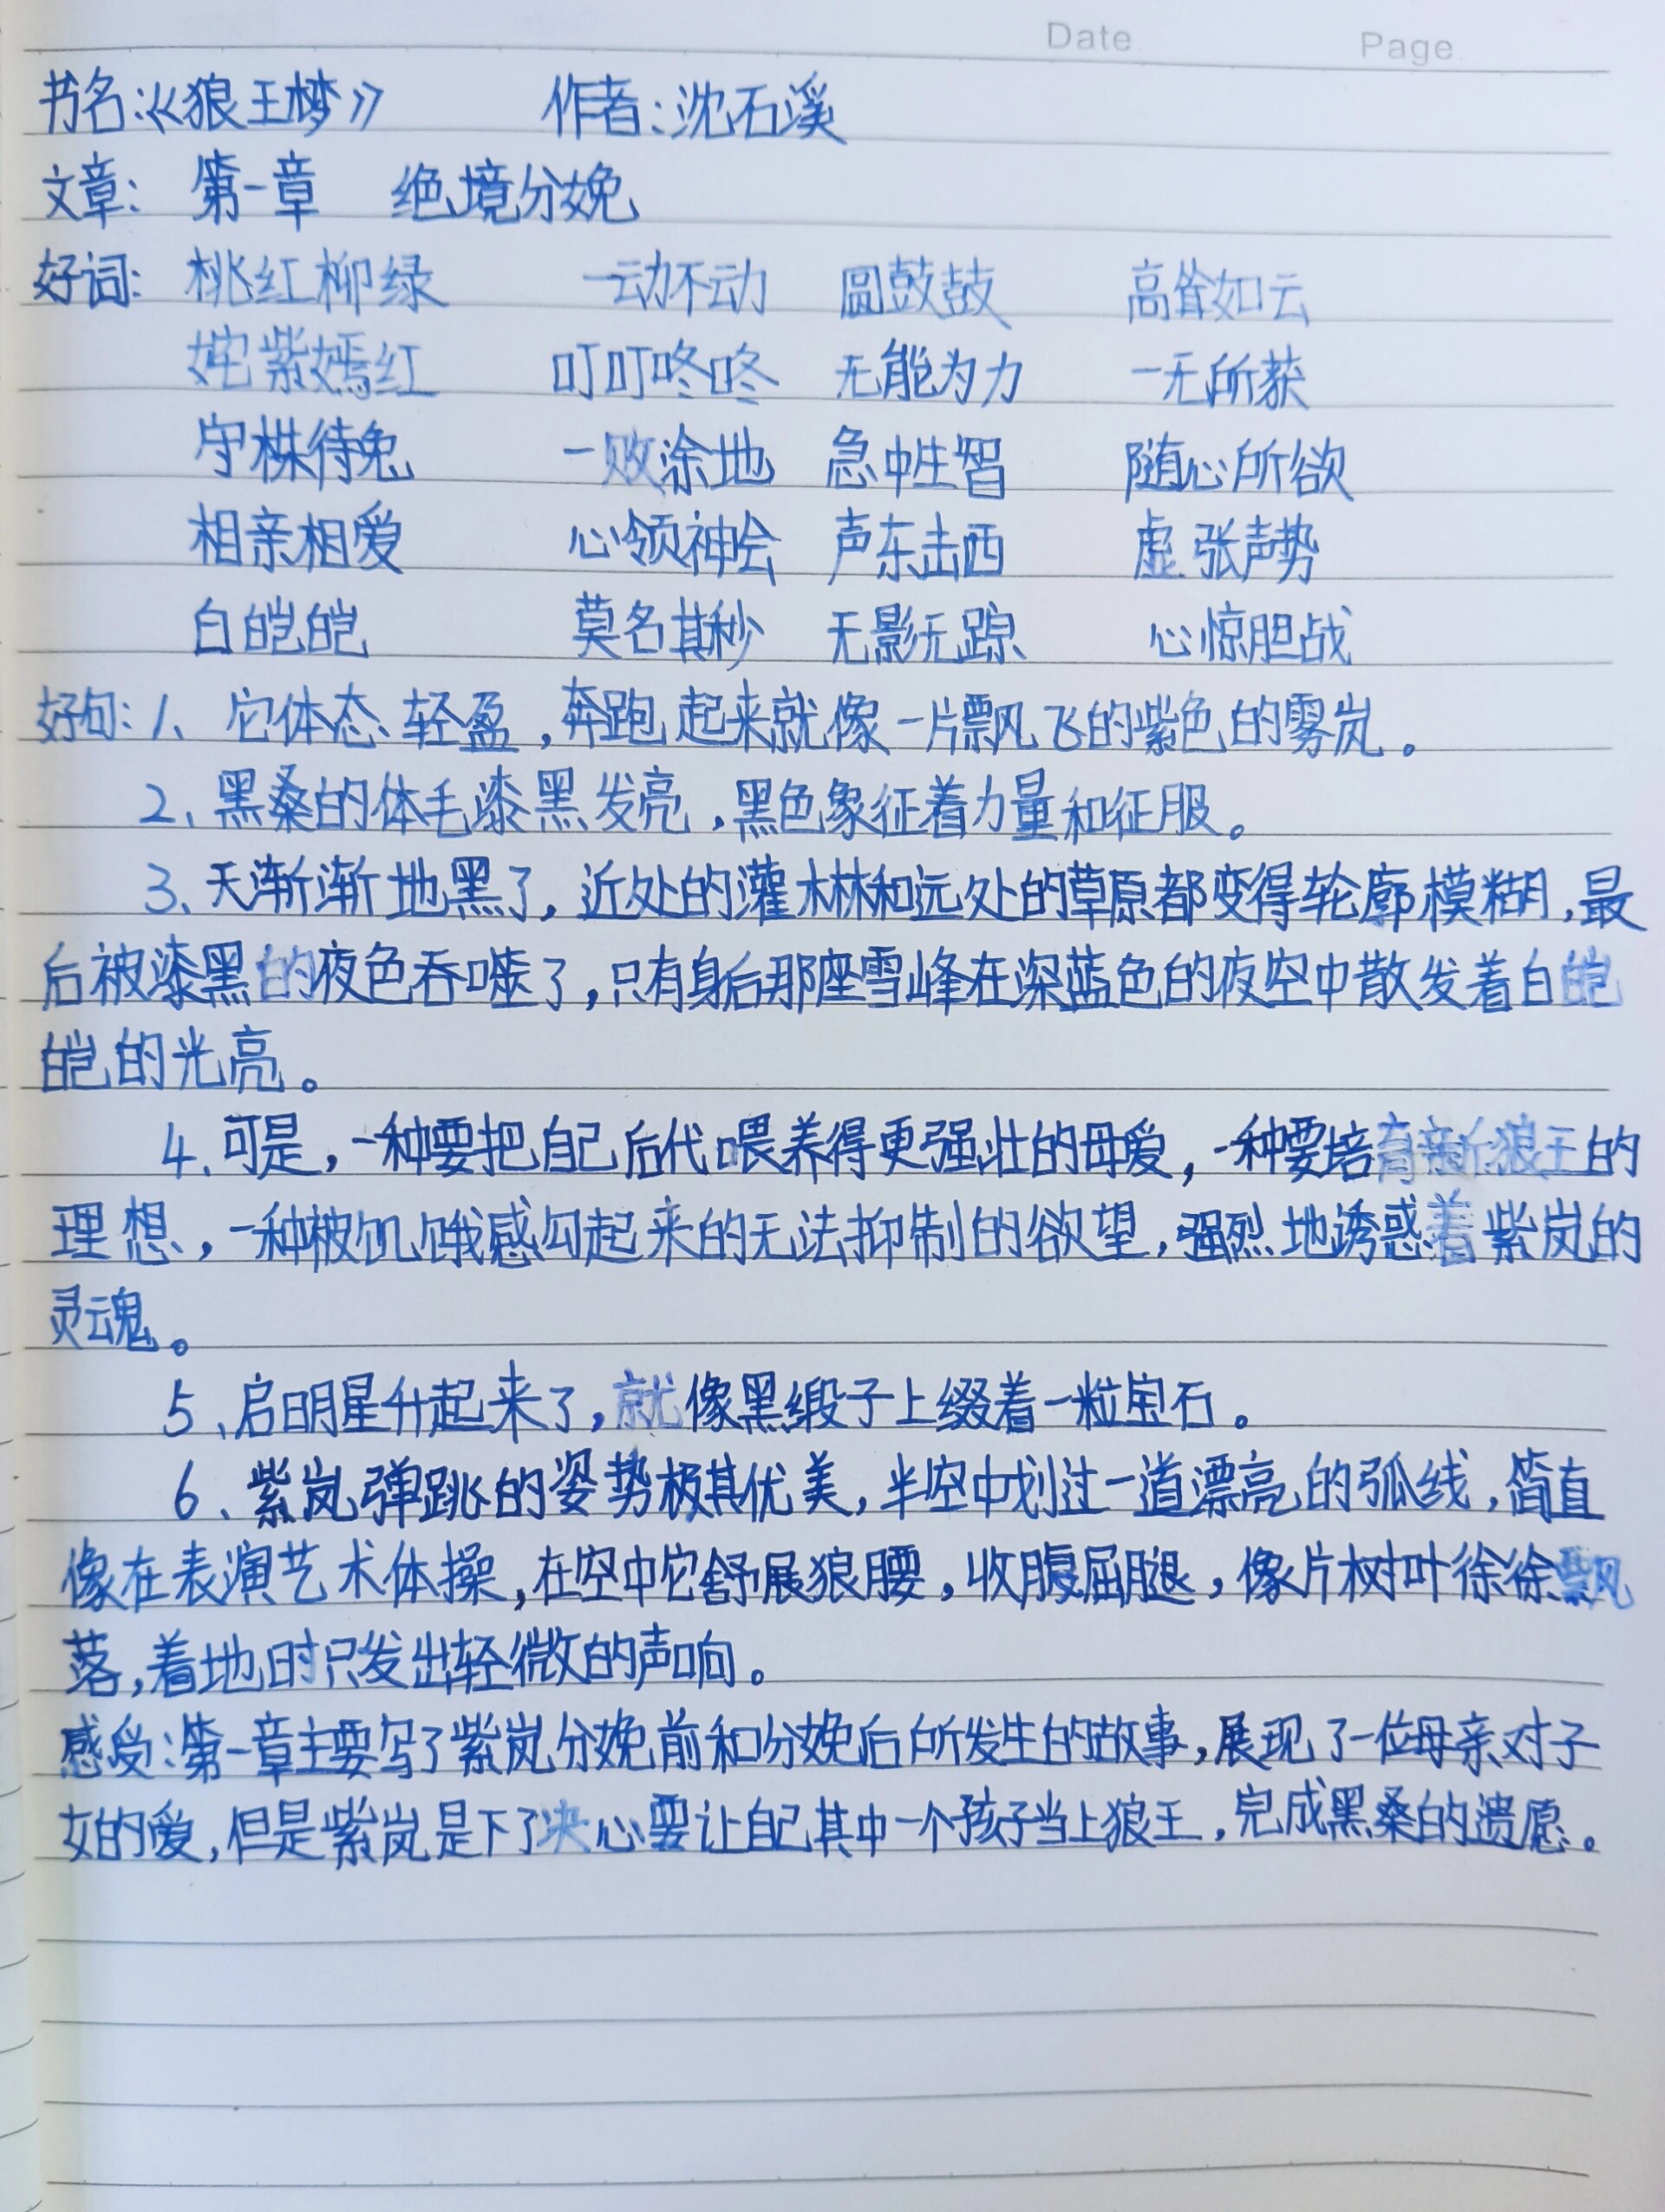 Date Page
书名:《狼王梦》 作者:沈石溪
文章: 第一章 绝境分娩
好词: 桃红柳绿 一动不动 圆鼓鼓 高耸如云
姹紫嫣红 叮叮咚咚 无能为力 一无所获
守株待兔 一败涂地 急中生智 随心所欲
相亲相爱 心领神会 声东击西 虚张声势
白皑皑 莫名其秒 无影无踪 心惊胆战
好句:1、它体态轻盈,奔跑起来就像一片飘飞的紫色的雾岚。
2、黑桑的体毛漆黑发亮,黑色象征着力量和征服。
3、天渐渐地黑了,近处的灌木林和远处的草原都变得轮廓模糊,最
后被漆黑的夜色吞噬了,只有身后那座雪峰在深蓝色的夜空中散发着白皑
皑的光亮。
4、可是,一种要把自己后代喂养得更强壮的母爱,一种要培育新狼王的
理想,一种被饥饿感勾起来的无法抑制的欲望,强烈地诱惑着紫岚的
灵魂。
5、启明星升起来了,就像黑缎子上缀着一粒宝石。
6、紫岚弹跳的姿势极其优美,半空中划过一道漂亮的弧线,简直
像在表演艺术体操,在空中它舒展狼腰,收腹屈腿,像片树叶徐徐飘
落,着地时只发出轻微的声响。
感受:第一章主要写了紫岚分娩前和分娩后所发生的故事,展现了一位母亲对子
女的爱,但是紫岚是下了决心要让自己其中一个孩子当上狼王,完成黑桑的遗愿。